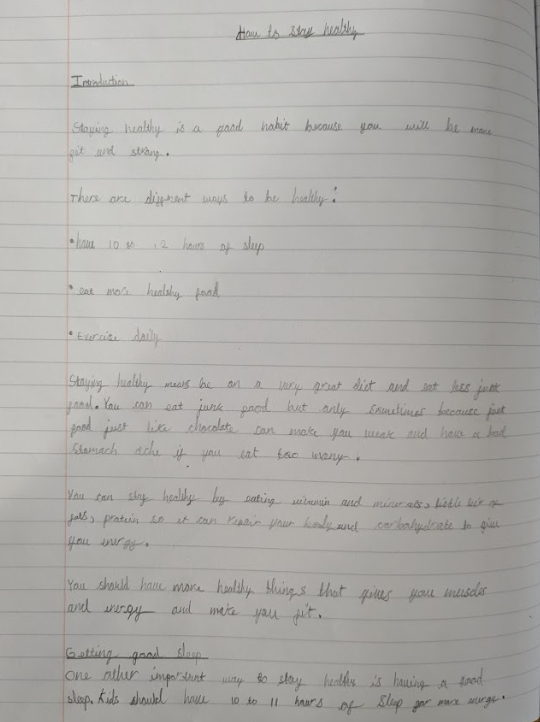 How to stay healthy
Introduction
Staying healthy is a good habit because you will be more
fit and strong.
There are different ways to be healthy:
• have 10 to 12 hours of sleep
• eat more healthy food
• Exercise daily
Staying healthy means be on a very great diet and eat less junk
food. You can eat junk food but only sometimes because junk
food just like chocolate can make you weak and have a bad
stomach ache if you eat too many.
You can stay healthy by eating vitamin and minerals, little bit of
fats, protein so it can repair your body and carbohydrate to give
you energy.
You should have more healthy things that gives you muscles
and energy and make you fit.
Getting good sleep
One other important way to stay healthy is having a good
sleep. Kids should have 10 to 11 hours of sleep for more energy.